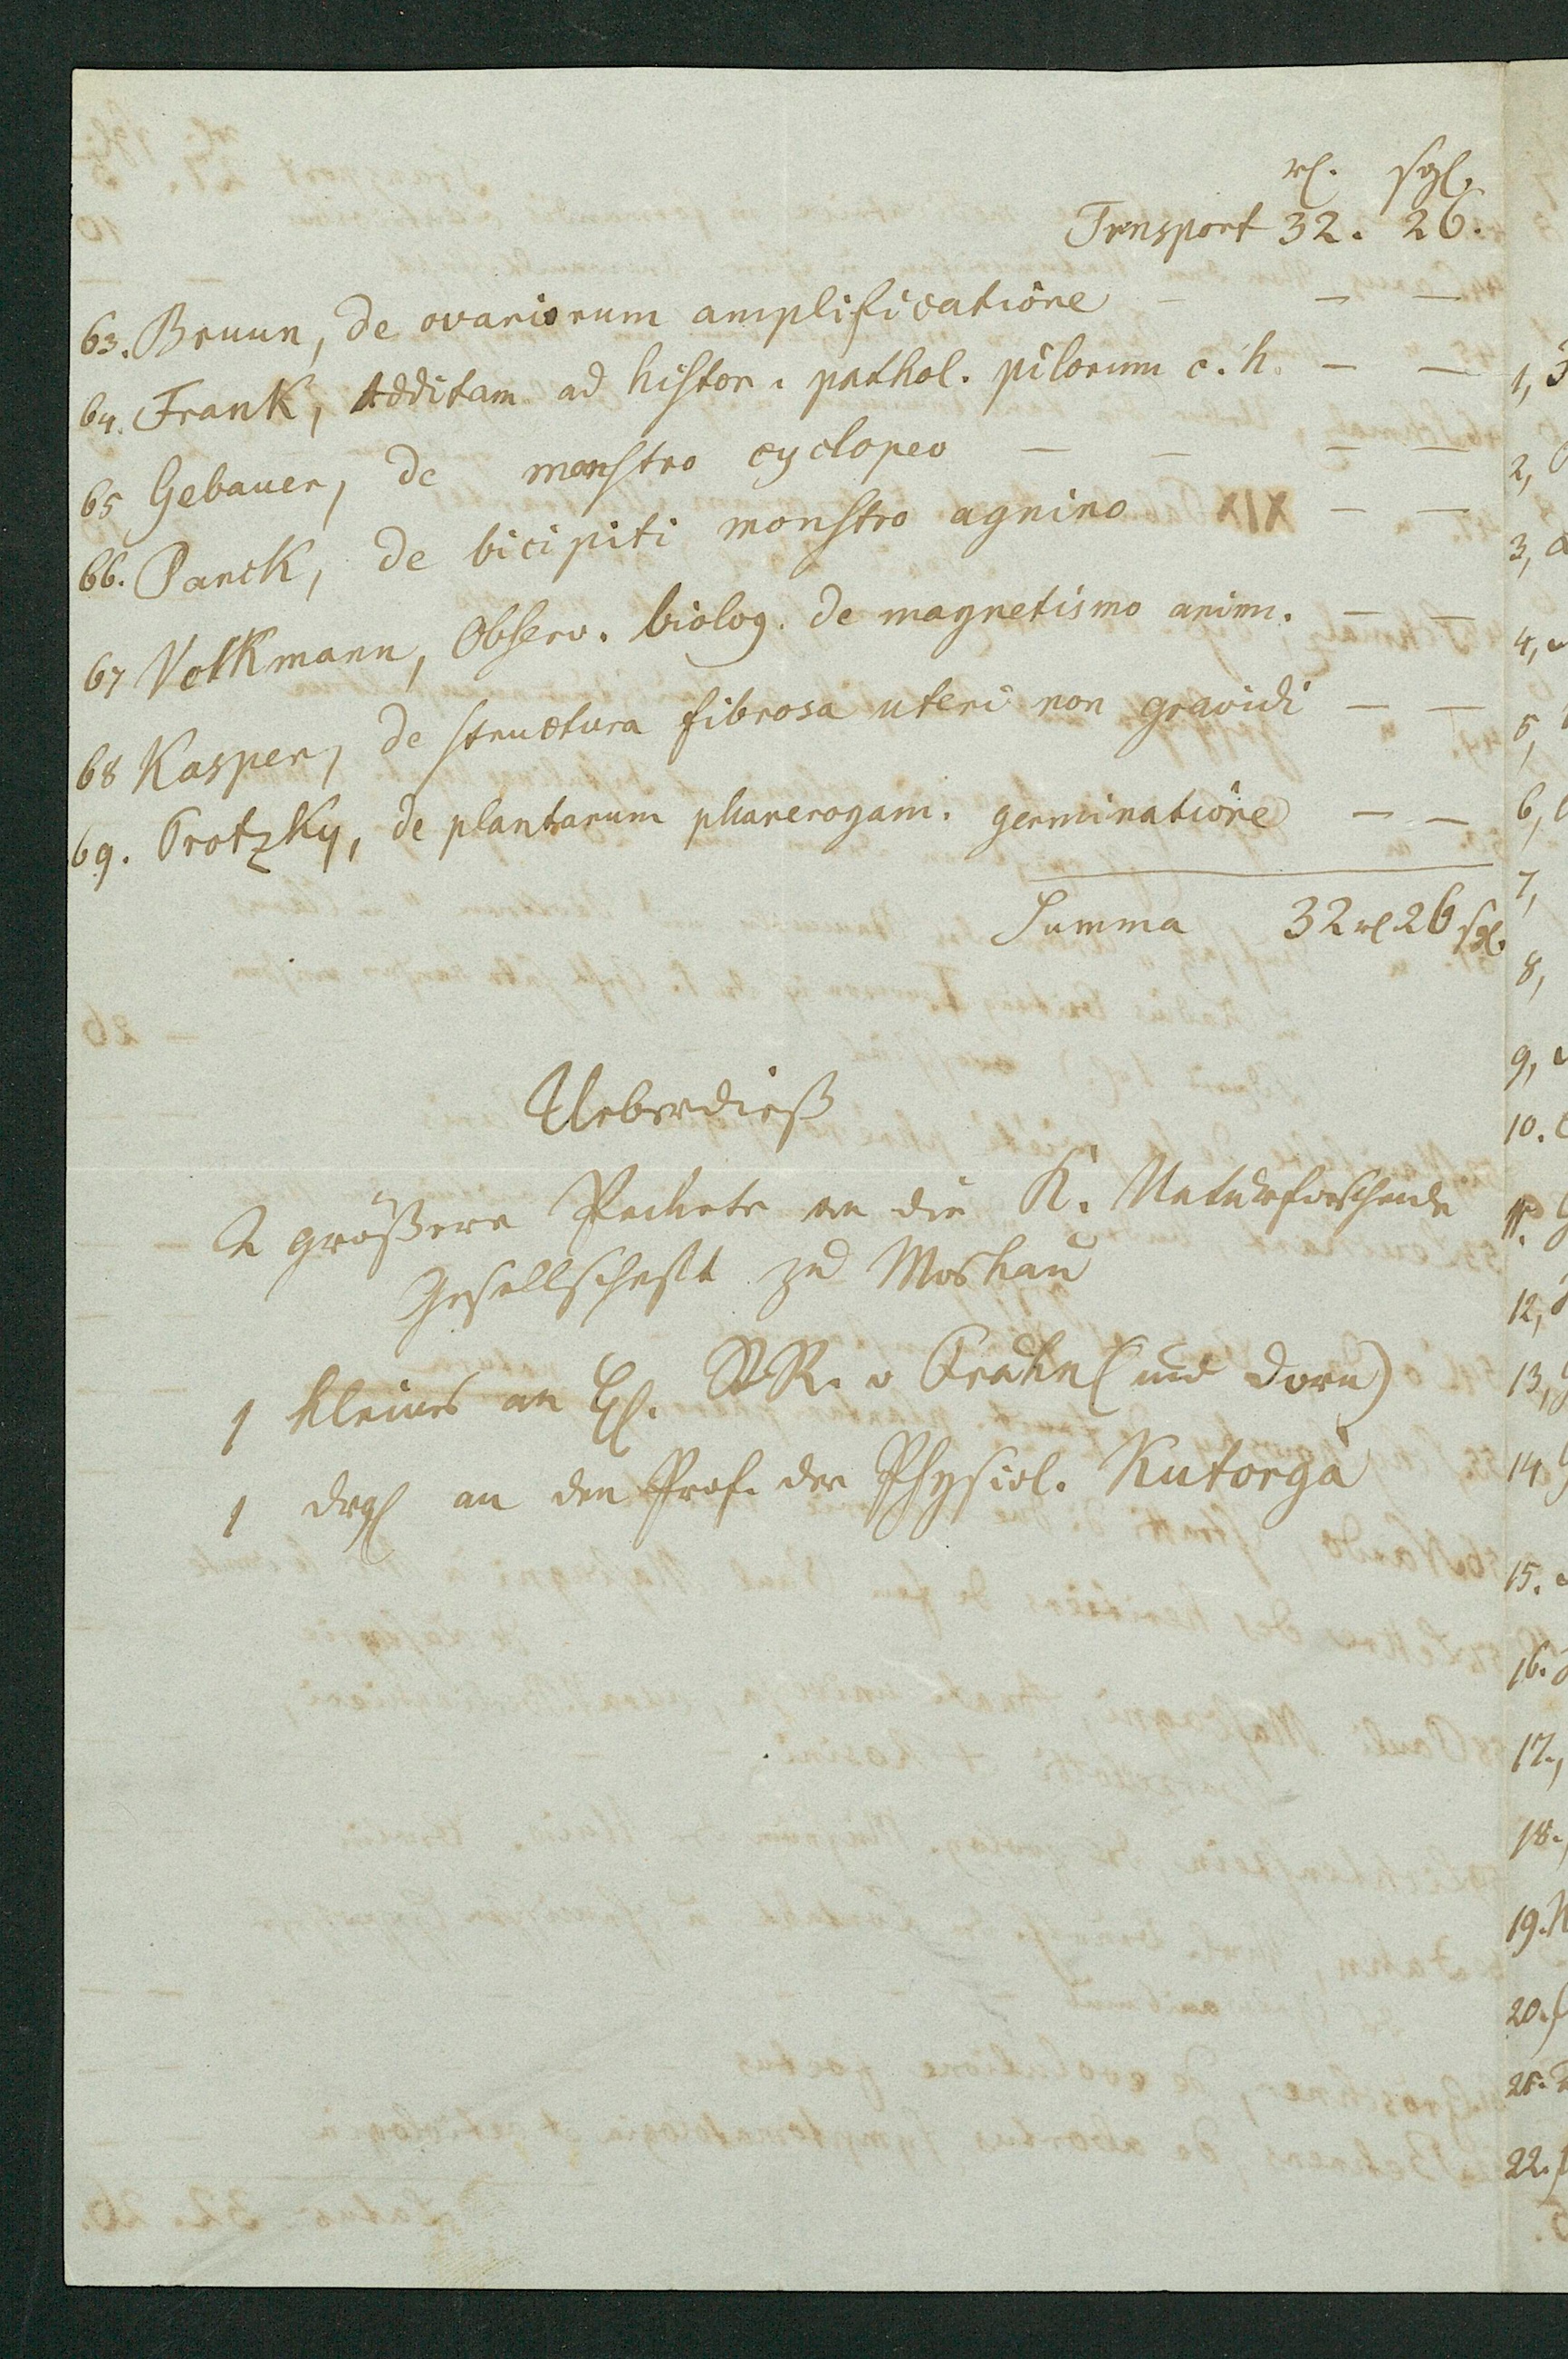 rl. sgl.
Transport 32. 26.
63. Bruun, de ovariorum amplificatione — — —
64. Frank, Additam. ad histor. pathol. pilorum c. h. — —
65 Gebauer, de monstro cyclopeo — — — —
66. Panck, de bicipiti monstro agnino — —
67 Volkmann, Observ. biolog. de magnetismo anim. — —
68 Kasper, de structura fibrosa uteri non gravidi — —
69. Trotzky, de plantarum phanerogam. germinatione — —
Summa 32 rl 26 sgl.
Ueberdieß
2 größere Packete an die K. Naturforschende
Gesellschaft zu Moskau
1 kleines an H. St.R. v (und Dorn)
1 dgl an den Prof. der Physiol. Kutorga
1,
2,
3,
4,
5,
6,
7,
8,
9,
10.
11.
12,
13,
14
15.
16.
17.,
18.,
19.
20.
21.
22.